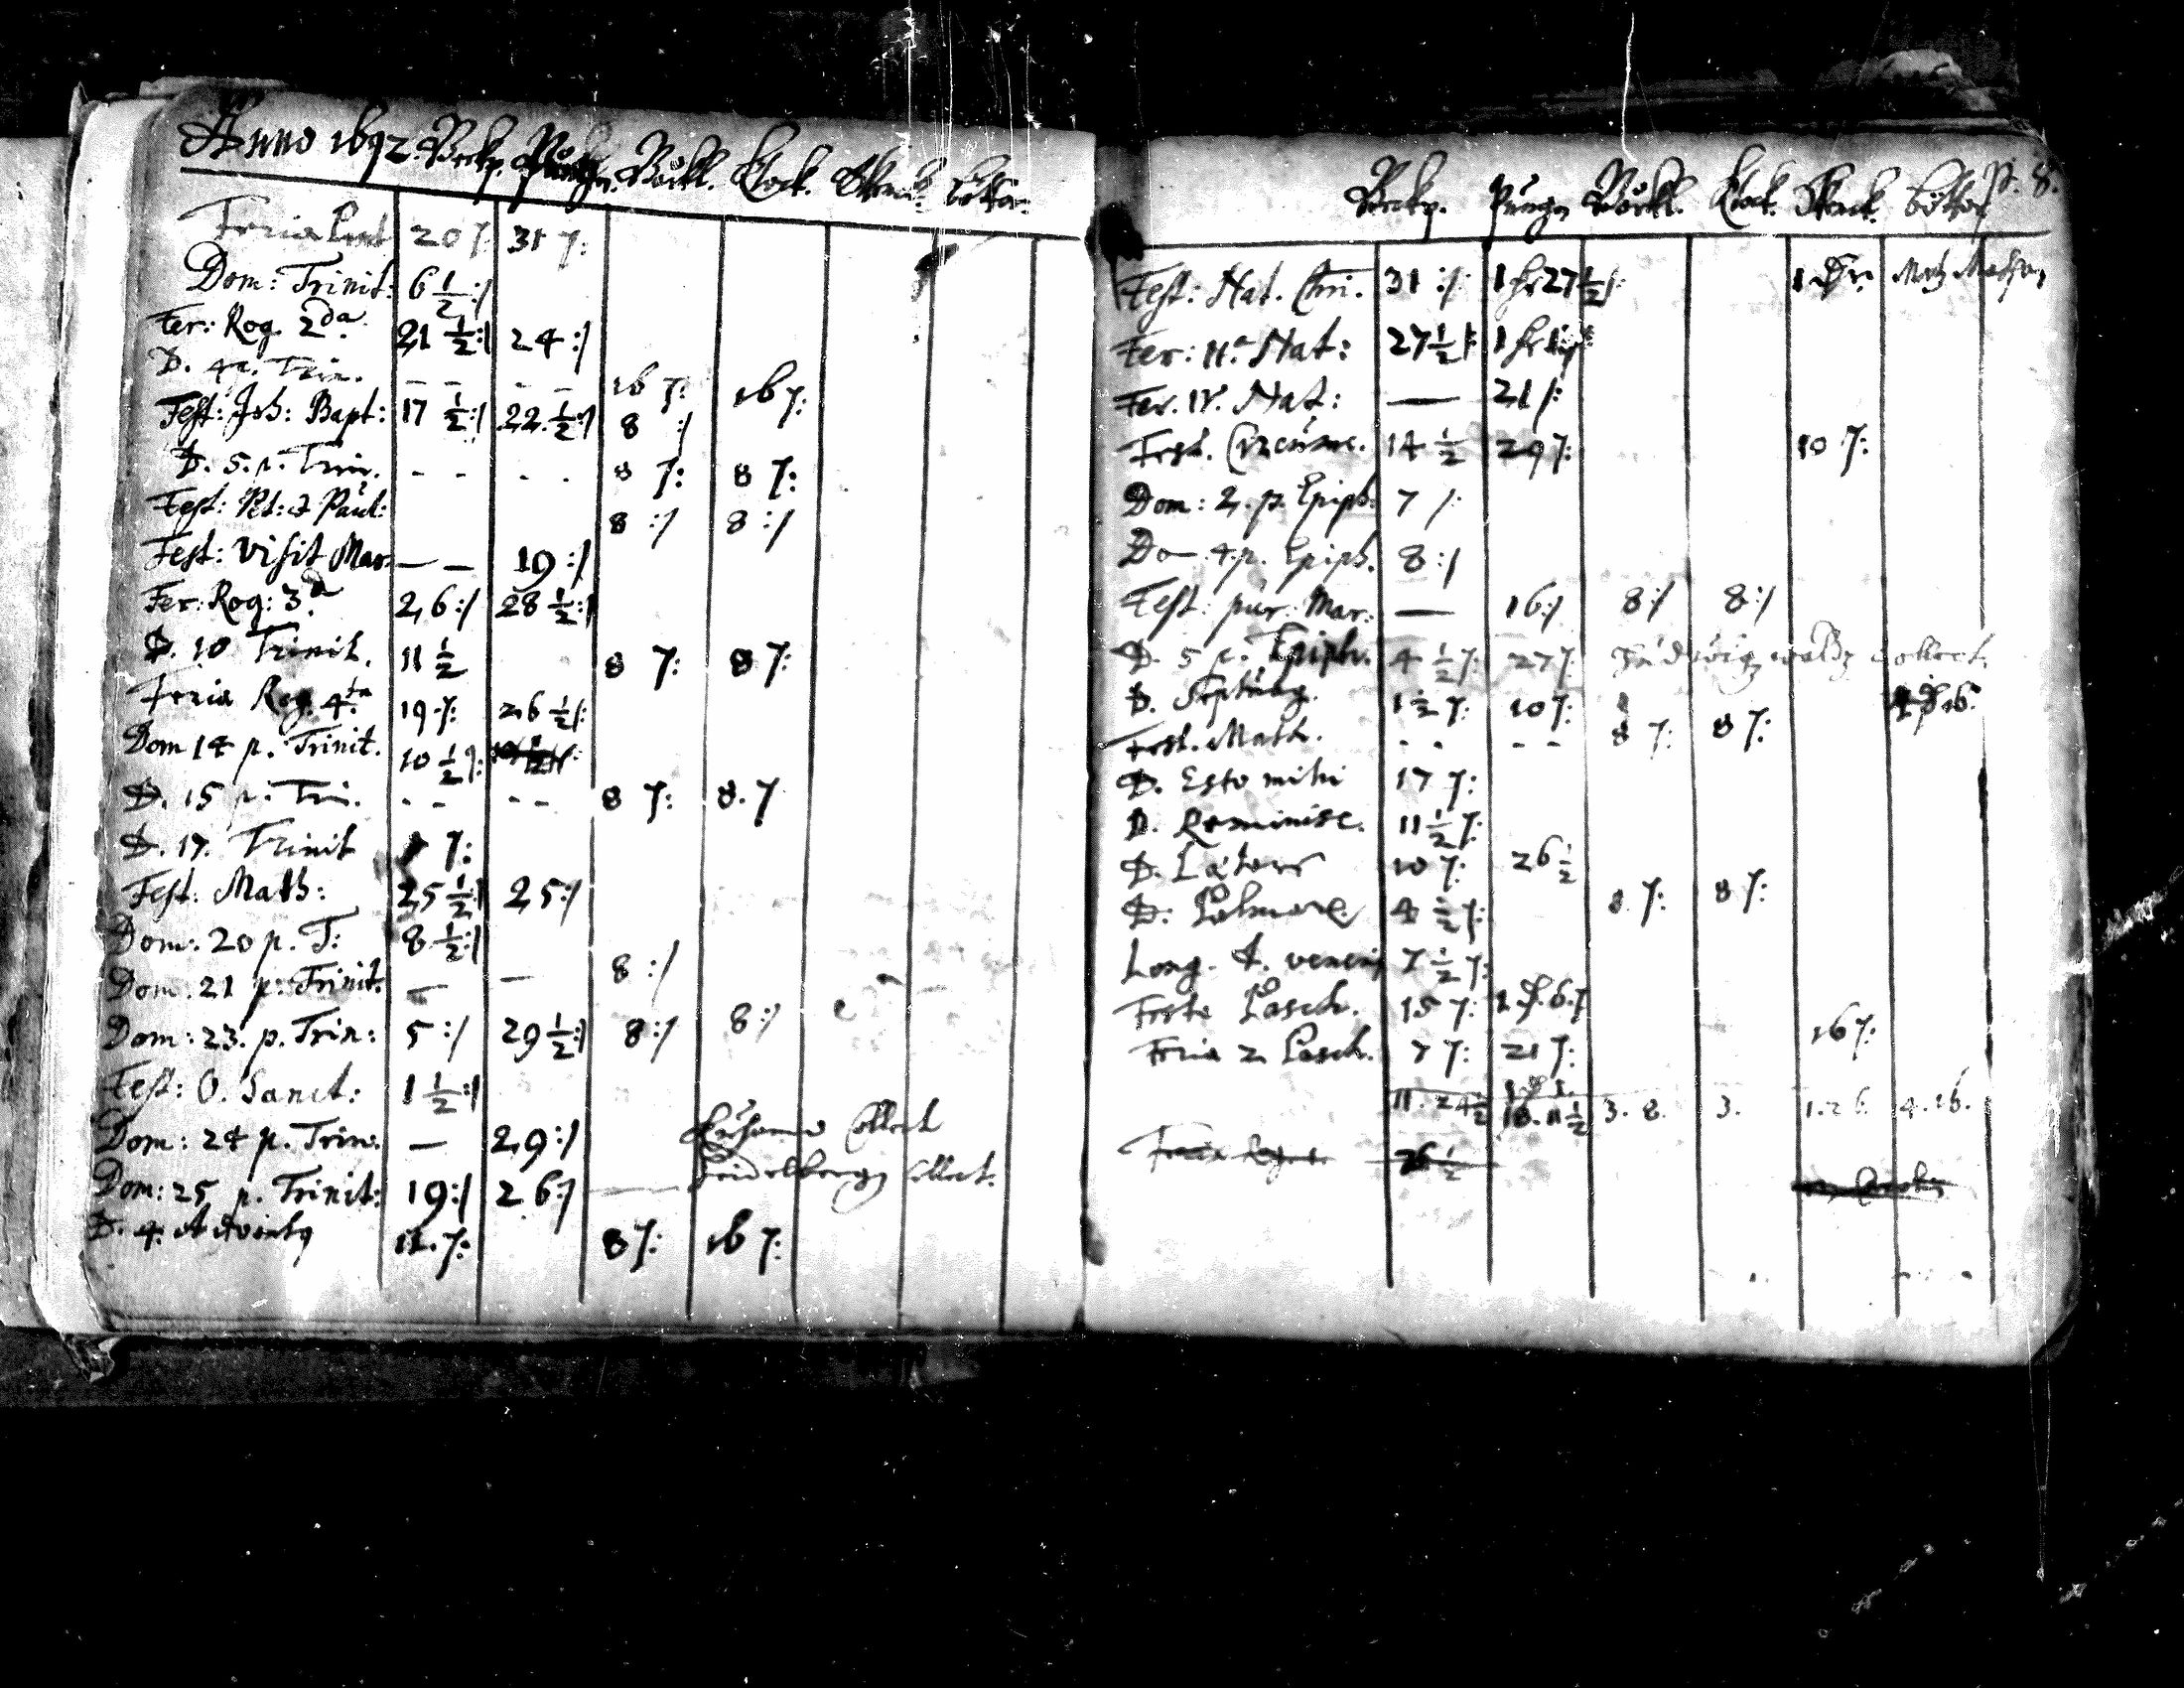 Anno 1692. Beckn. Pung. Bårkl. Clock. Skänck: böther
Feria Pent 20 /: 31 /:
Dom: Trinit: 6 1/2 :/
Fer: Rog. 2da. 21 1/2 :/ 24 :/
D. 4 p. Trin. - - - - 16 /: 16 /:
Fest: Joh: Bapt: 17 1/2 :/ 22 1/2 :/ 8 :/
D. 5. p. Trin. - - - - 8 /: 8 /:
Fest: Pet: & Paul: 8 :/ 8 :/
Fest: Visit Mar — — 19 :/
Fer: Rog: 3a 26 :/ 28 1/2 :/
D. 10 Trinit. 11 1/2 8 /: 8 /:
Feria Rog. 4ta 19 /: 26 1/2 /:
Dom 14 p. Trinit. 10 1/2 /:
D. 15 p. Tri. - - - - 8 /: 8. /
D. 17. Trinit /:
Fest: Math: 25 1/2 :/ 25 :/
Dom: 20 p. T: 8 1/2 :/
Dom: 21 p. Trinit: — — 8 :/
Dom: 23. p. Trin: 5 :/ 29 1/2 :/ 8 :/ 8 :/
Fest: O. Sanct: 1 1/2 :/
Dom: 24 p. Trin: — 29 :/ Collect
Dom: 25 p. Trinit: 19 :/ 26 :/ Heidelbergz Collect.
D. 4. Adventq 11. /: 8 /: 16 /:
Beckn. Pungn Bårkl. Clock. Skänck. böther p. 8.
Fest: Nat. Chri. 31 :/ 1 27 1/2 /: 1
Fer: II.a Nat: 27 1/2 /: 1
Fer. IV. Nat: — 21 /:
Fest. Circumc. 14 1/2 29 /: 10 /:
Dom: 2. p. Epiph: 7 /:
Do— 4 p. Epiph. 8 :/
Fest: pur: Mar: — 16 :/ 8 :/ 8 :/
D. 5 p. Epiph. 4 1/2 /: 27 /: Collect.
D. Septuag. 1 1/2 /: 10 /:
Fest. Math. - - - - 8 /: 8 /:
D. Esto mihi 17 /:
D. Reminisc. 11 1/2 /:
D. Lætare 10 /: 26 1/2
D. Palmar. 4 1/2 /: 8 /: 8 /:
Long. d. veneris 7 1/2 /:
Festo Pasch. 15 /: 1 6 /: 16 /:
Feria 2 Pasch. 7 /: 21 /:
11. 24 1/2 10. 11 1/2 3. 8. 3. 1. 26. 4. 16.
Feria Rog. 1. 26 1/2